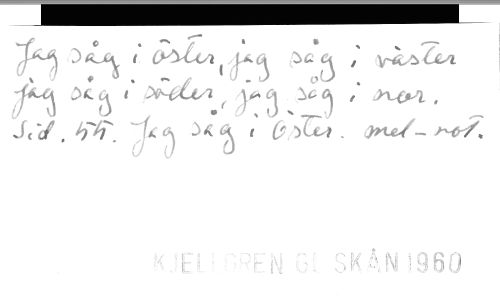 Jag såg i öster, jag såg i väster
jag såg i söder, jag såg i nor.
Sid. 55. Jag såg i Öster. mel-not.
KJELLGREN GL SKÅN 1960